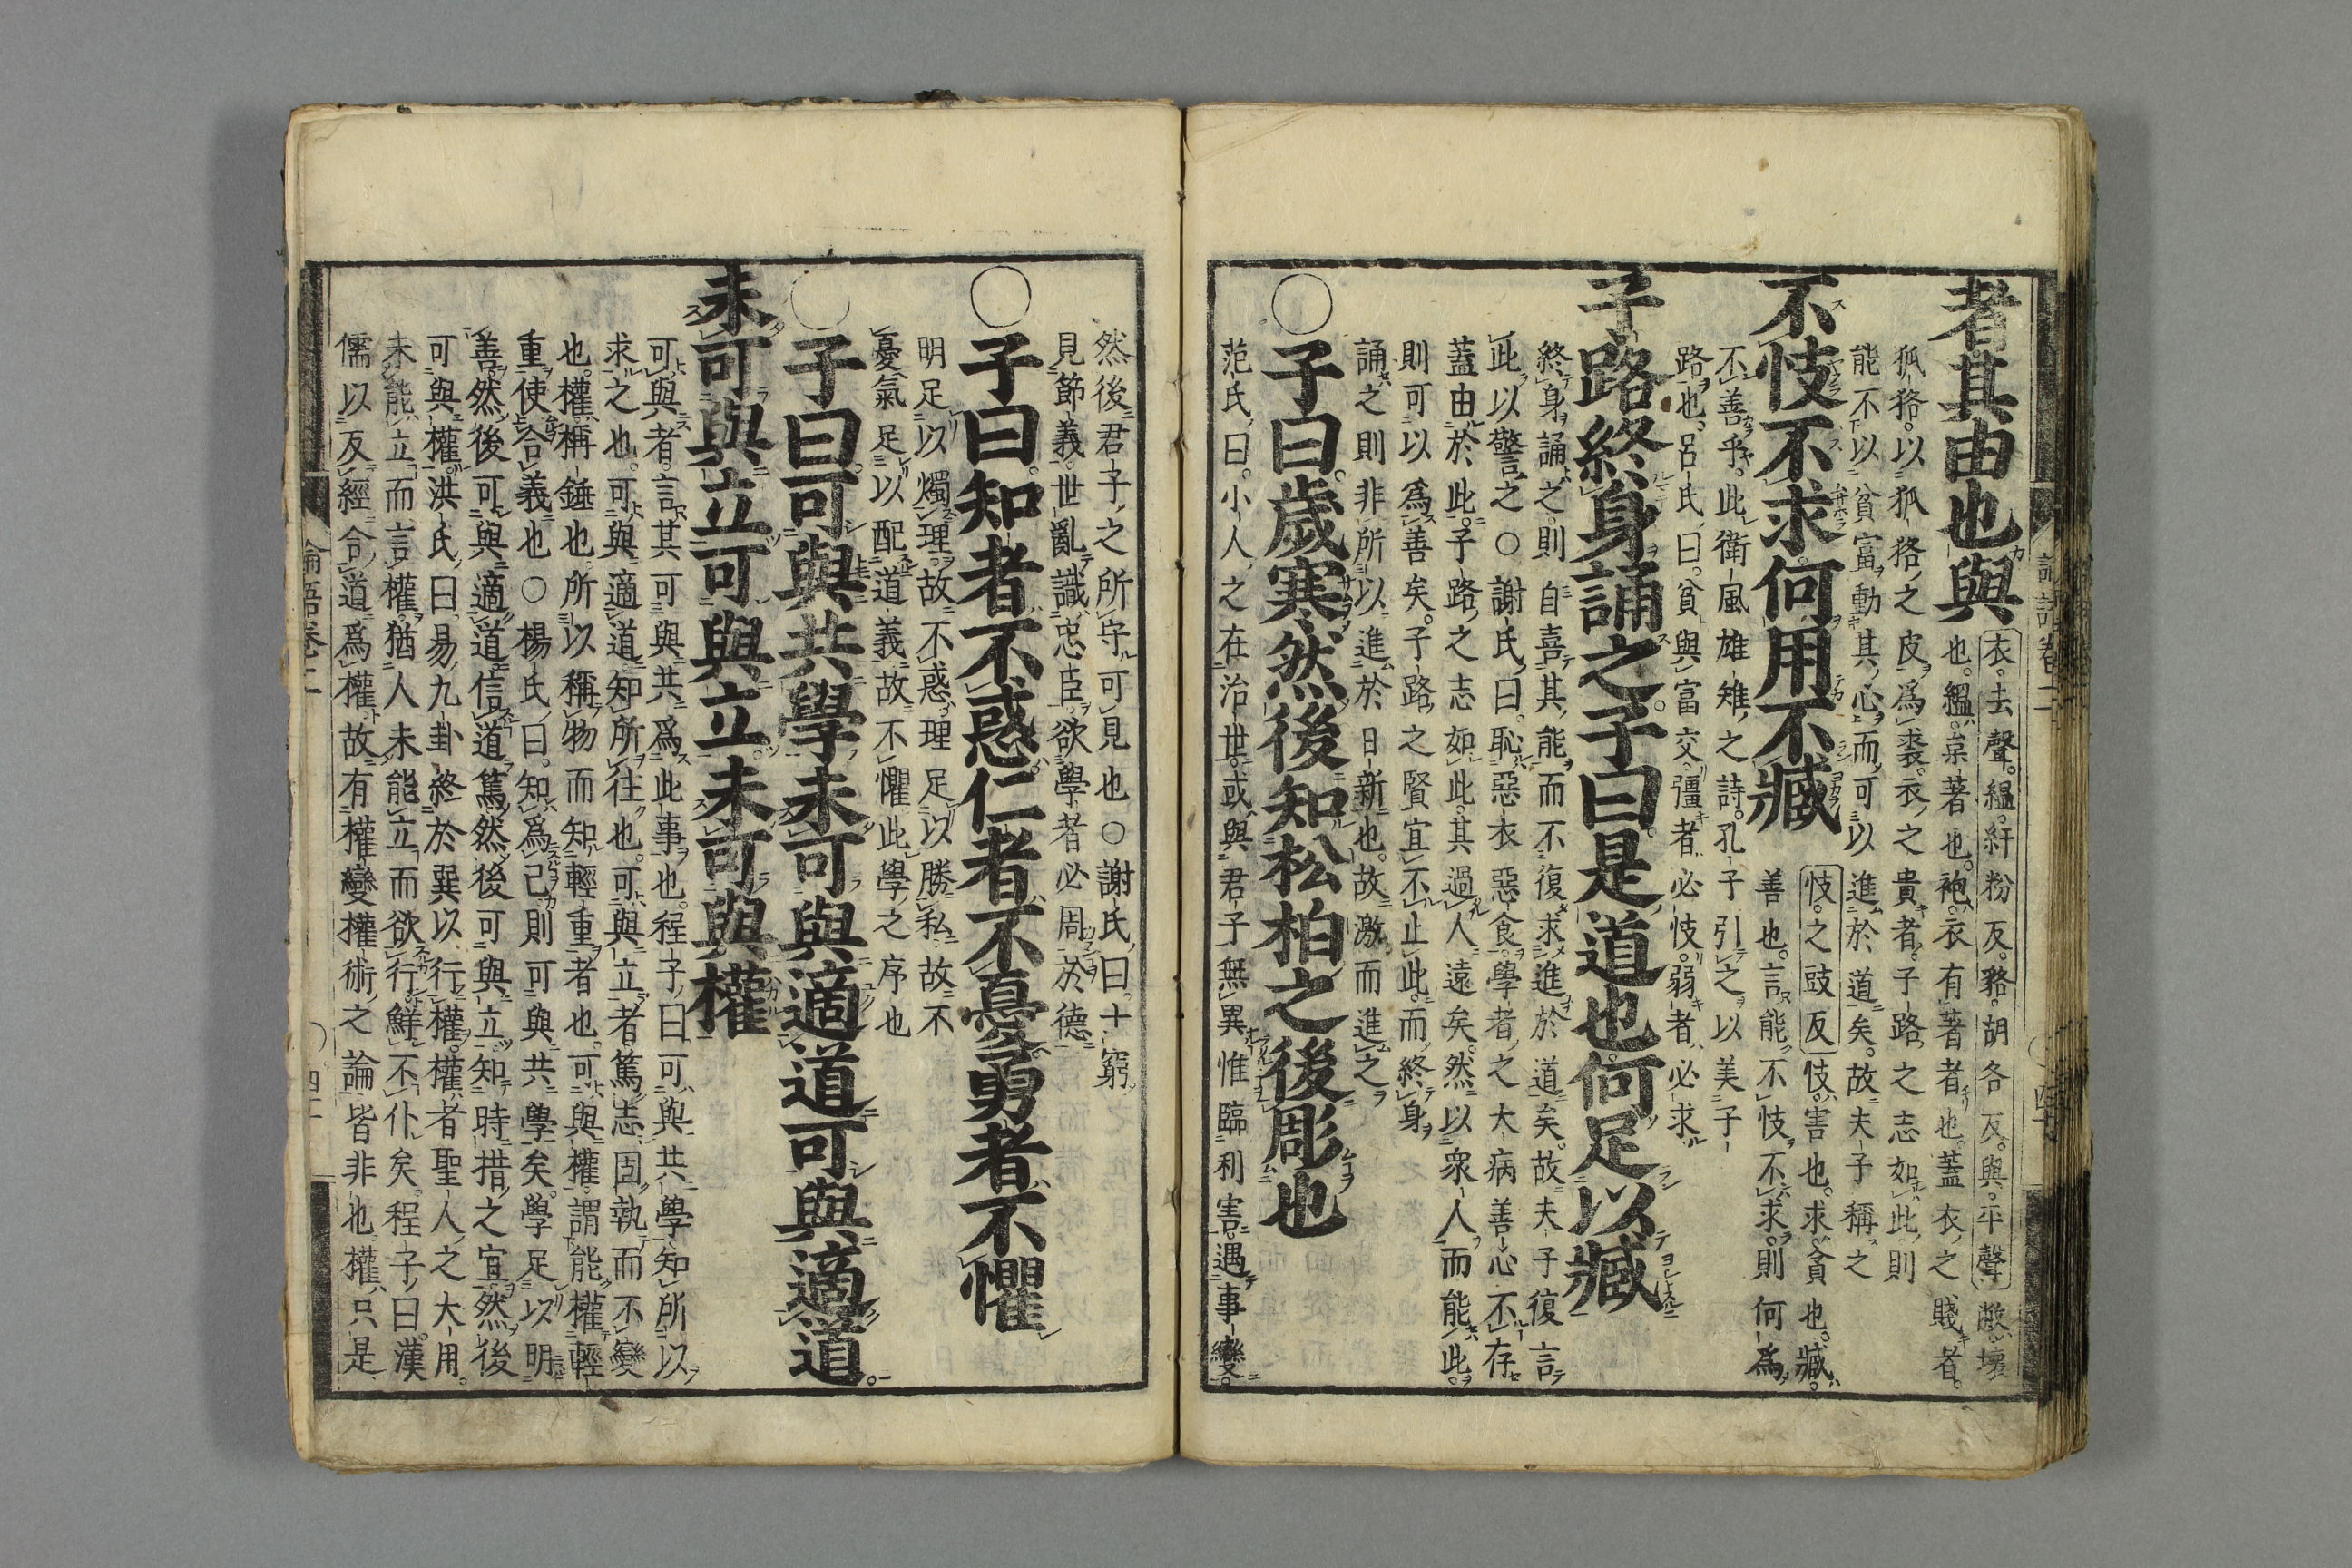 論語卷二 四十
者其由也與
衣。去聲。縕。紆粉反。貉。胡各反。與。平聲。敝壞
也。縕。枲著也。袍。衣有著者也。蓋衣之賤者。
狐貉。以狐貉之皮爲裘。衣之貴者。子路之志如此則
能不以貧富動其心。而可以進於道矣。故夫子稱之
不忮不求何用不臧
忮。之豉反忮。害也。求。貪也。臧。
善也。言能不忮不求。則何爲
不善乎。此衛風雄雉之詩。孔子引之以美子
路也。呂氏曰。貧與富交。彊者必忮。弱者必求
子路終身誦之。子曰。是道也何足以臧
終身誦之。則自喜其能而不復求進於道矣。故夫子復言
此以警之○謝氏曰。恥惡衣惡食。學者之大病善心不存
蓋由於此。子路之志如此。其過人遠矣。然以衆人而能此。
則可以爲善矣。子路之賢宜不止此。而終身
誦之則非所以進於日新也。故激而進之
○子曰。歲寒然後知松柏之後彫也
范氏曰。小人之在治世。或與君子無異惟臨利害。遇事變。
然後君子之所守可見也○謝氏曰。士窮
見節義。世亂識忠臣。欲學者必周於德
○子曰。知者不惑。仁者不憂。勇者不懼
明足以燭理。故不惑。理足以勝私。故不
憂氣足以配道義。故不懼此學之序也
○子曰。可與共學。未可與適道。可與適道。
未可與立。可與立。未可與權
可與者。言其可與共爲此事也。程子曰。可與共學知所以
求之也。可與適道。知所往也。可與立者。篤志固執而不變
也。權。稱錘也。所以稱物而知輕重者也。可與權。謂能權輕
重。使合義也○楊氏曰。知爲己則可與共學矣。學足以明
善。然後可與適道。信道篤。然後可與立。知時措之宜。然後
可與權。洪氏曰。易九卦終於巽以行權。權者聖人之大用。
未能立而言權。猶人未能立而欲行。鮮不仆矣。程子曰。漢
儒以反經合道爲權。故有權變權術之論。皆非也。權只是
論語卷二